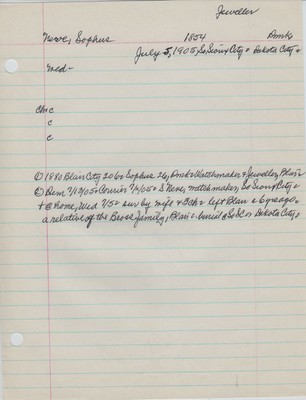 Jeweller
Neve, Sophus 1854 Dmk
July 5, 1905, So Sioux City Dakota City
Wed-
Ch: c
c
c
① 1880 Blair City 206 Sophus 26, Dmk Watchmaker & Jeweller, Blair
② Dem 7/13/05 Courier 7/14/05 S Neve, watchmaker, So Sioux City
@ home, Wed 7/5 sur by wife & 3ch left Blair 6 yrs ago
a relative of the Brose family, Blair burial @ So SC Dakota City